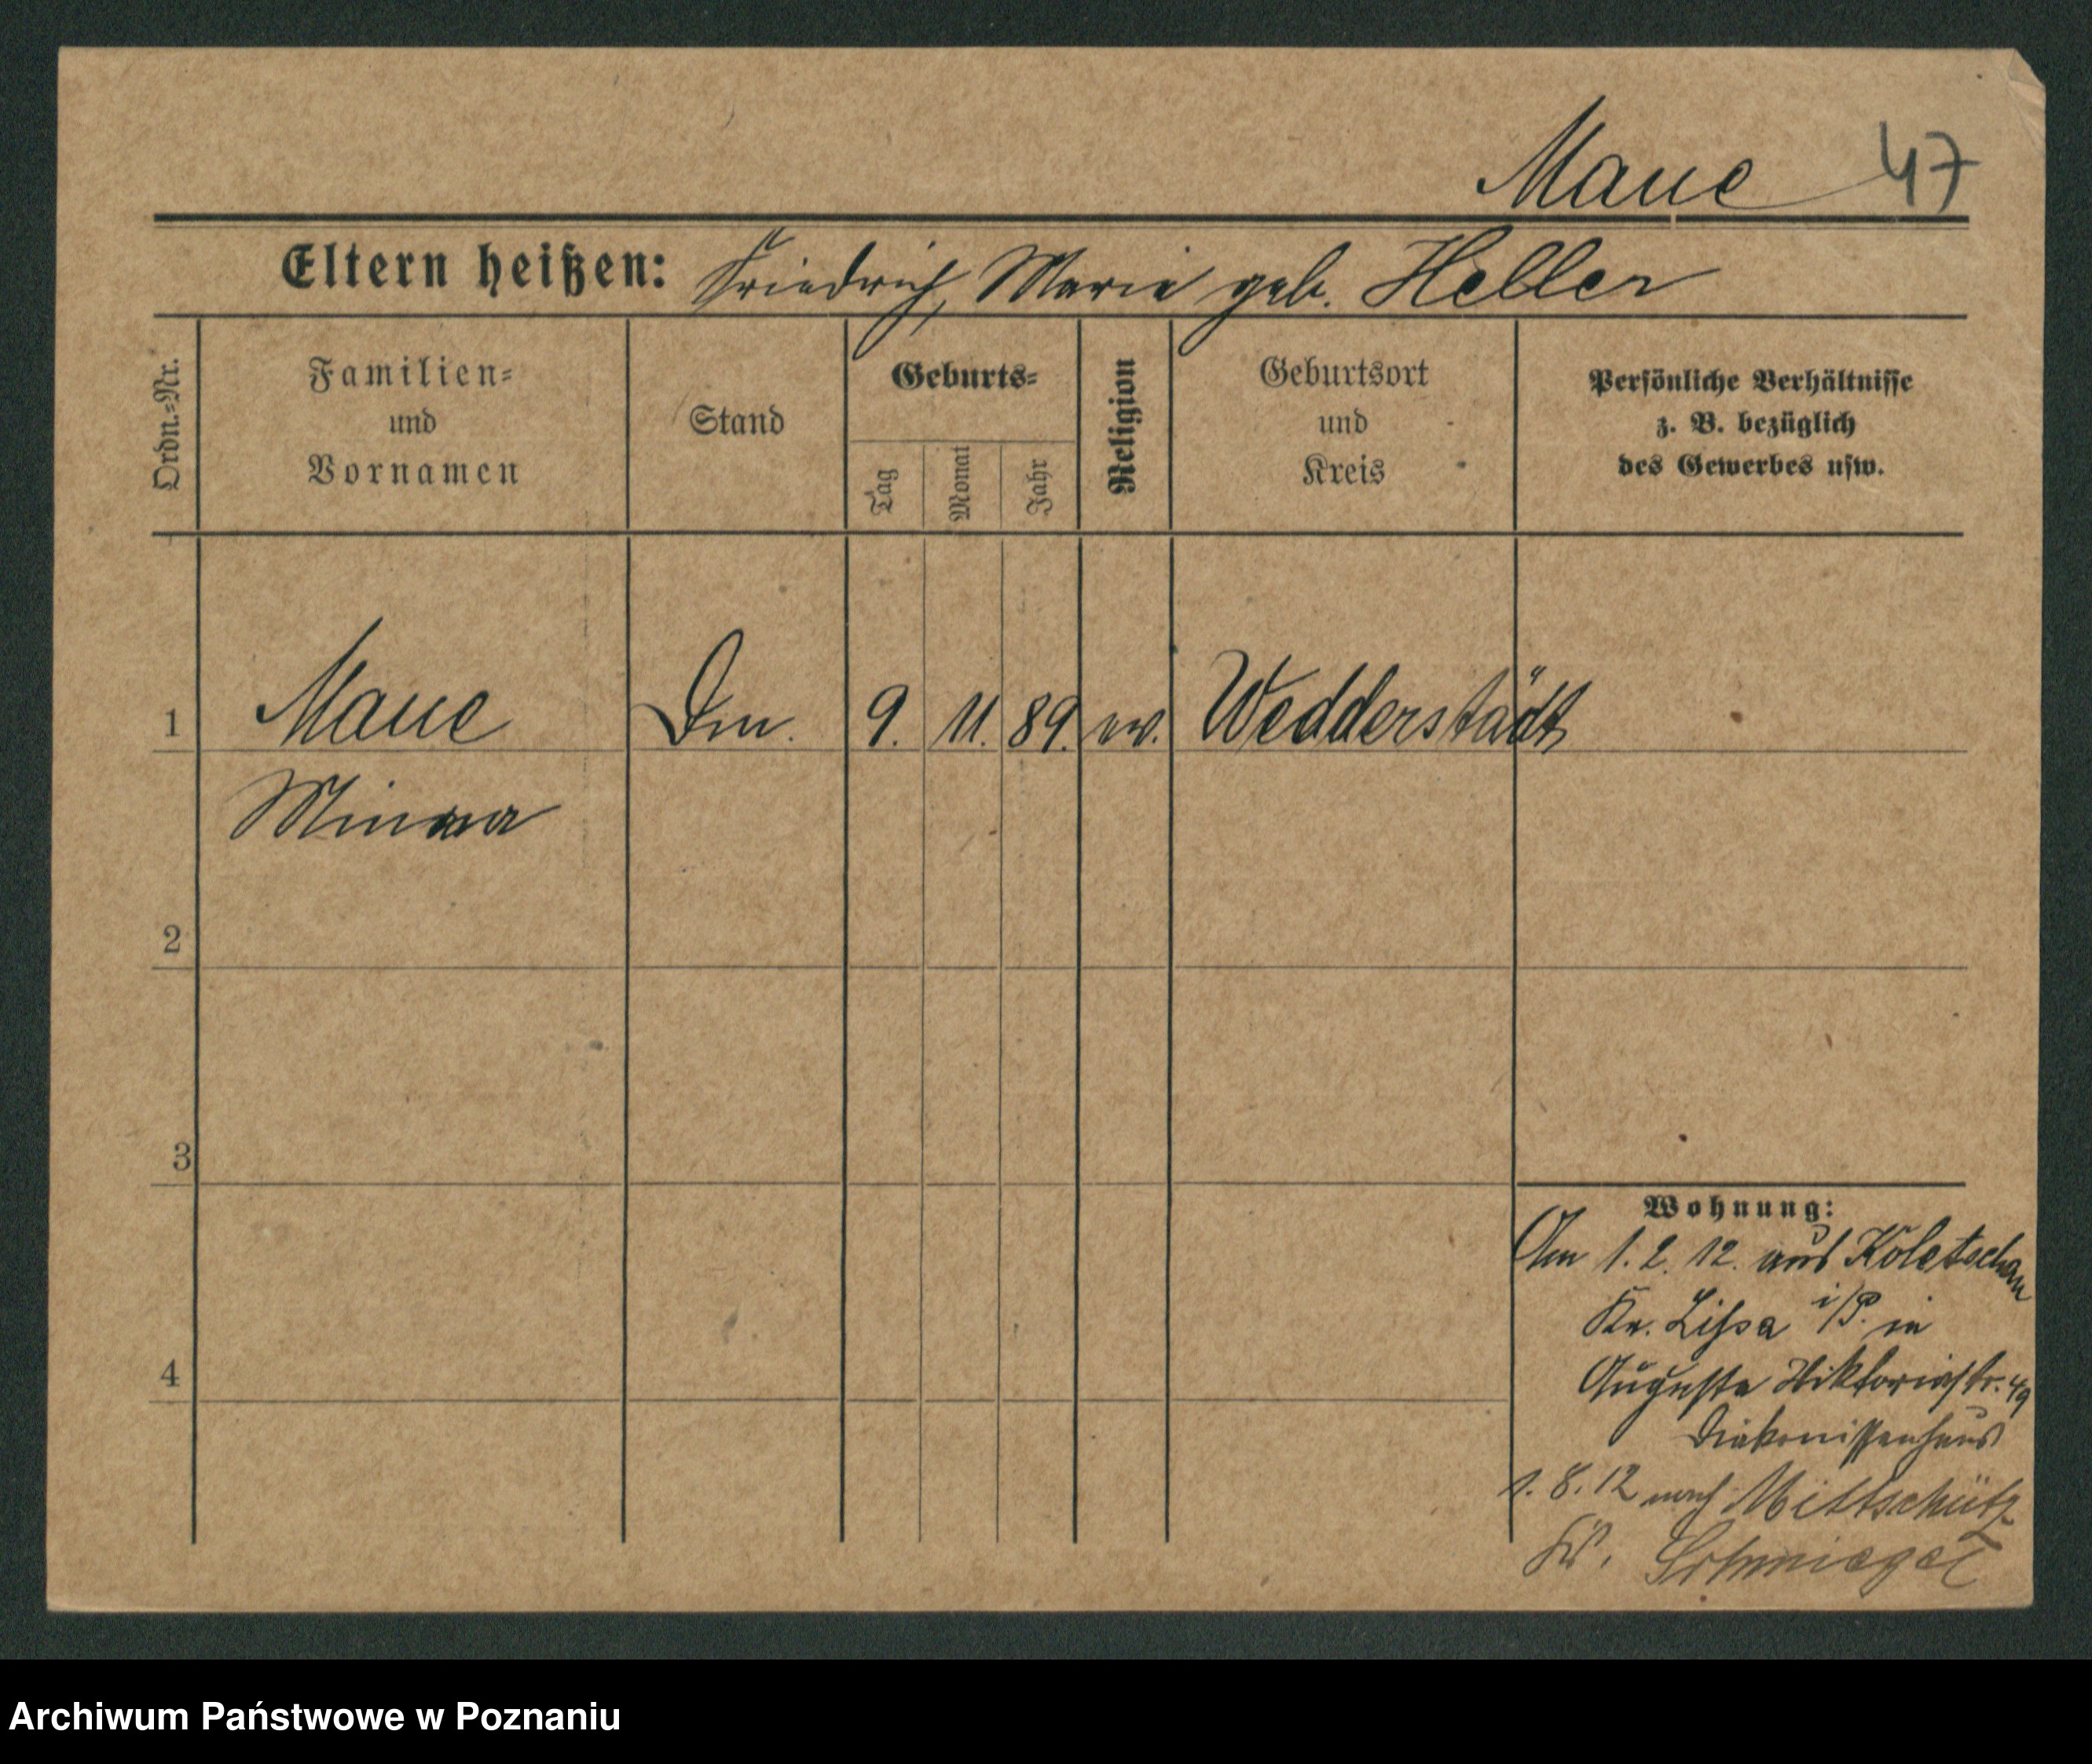 Maue 47
Eltern heißen: Friedrich, Marie geb. Heller
Ordn.-Nr.
Familien-
und
Vornamen
Stand
Geburts-
Tag
Monat
Jahr
Religion
Geburtsort
und
Kreis
Persönliche Verhältnisse
z. B. bezüglich
des Gewerbes usw.
1 Maue 9. 11. 89. ev. Wedderstädt
Minna
2
3
4
Wohnung:
Am 1. 2. 12. aus
Kr. Lissa i/P. in
Auguste Viktoriastr. 49
Diakonissenhaus
1. 8. 12 nach
Kr. Schmiegel
Archiwum Państwowe w Poznaniu